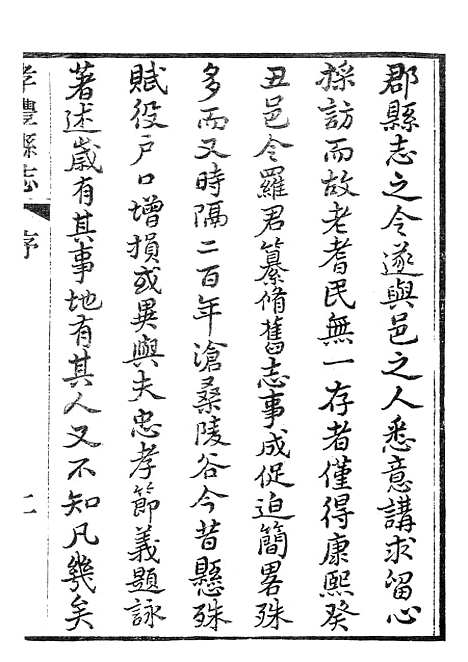 郡縣志之令遂與邑之人悉意講求留心
採訪而故老耆民無一存者僅得康熙癸
丑邑令羅君纂脩舊志事成促迫簡畧殊
多而又時隔二百年滄桑陵谷今昔懸殊
賦役戶口增損或異與夫忠孝節義題詠
著述歲有其事地有其人又不知凡幾矣
孝豐縣志 序 二